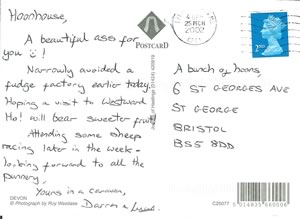 Hoonhouse,
A beautiful ass for
you :)!
Narrowly avoided a
fudge factory earlier today.
Hoping a visit to Westward
Ho! will bear sweeter fruit.
Attending some sheep
racing later in the week -
looking forward to all the
punnery.
Yours in a caravan,
Darren &
DEVON
© Photograph by Roy Westlake
POSTCARD
25
2002
2ND
A bunch of hoons,
6 ST GEORGES AVE
ST GEORGE
BRISTOL
BS5 8DD
C20077
5 014835 660006